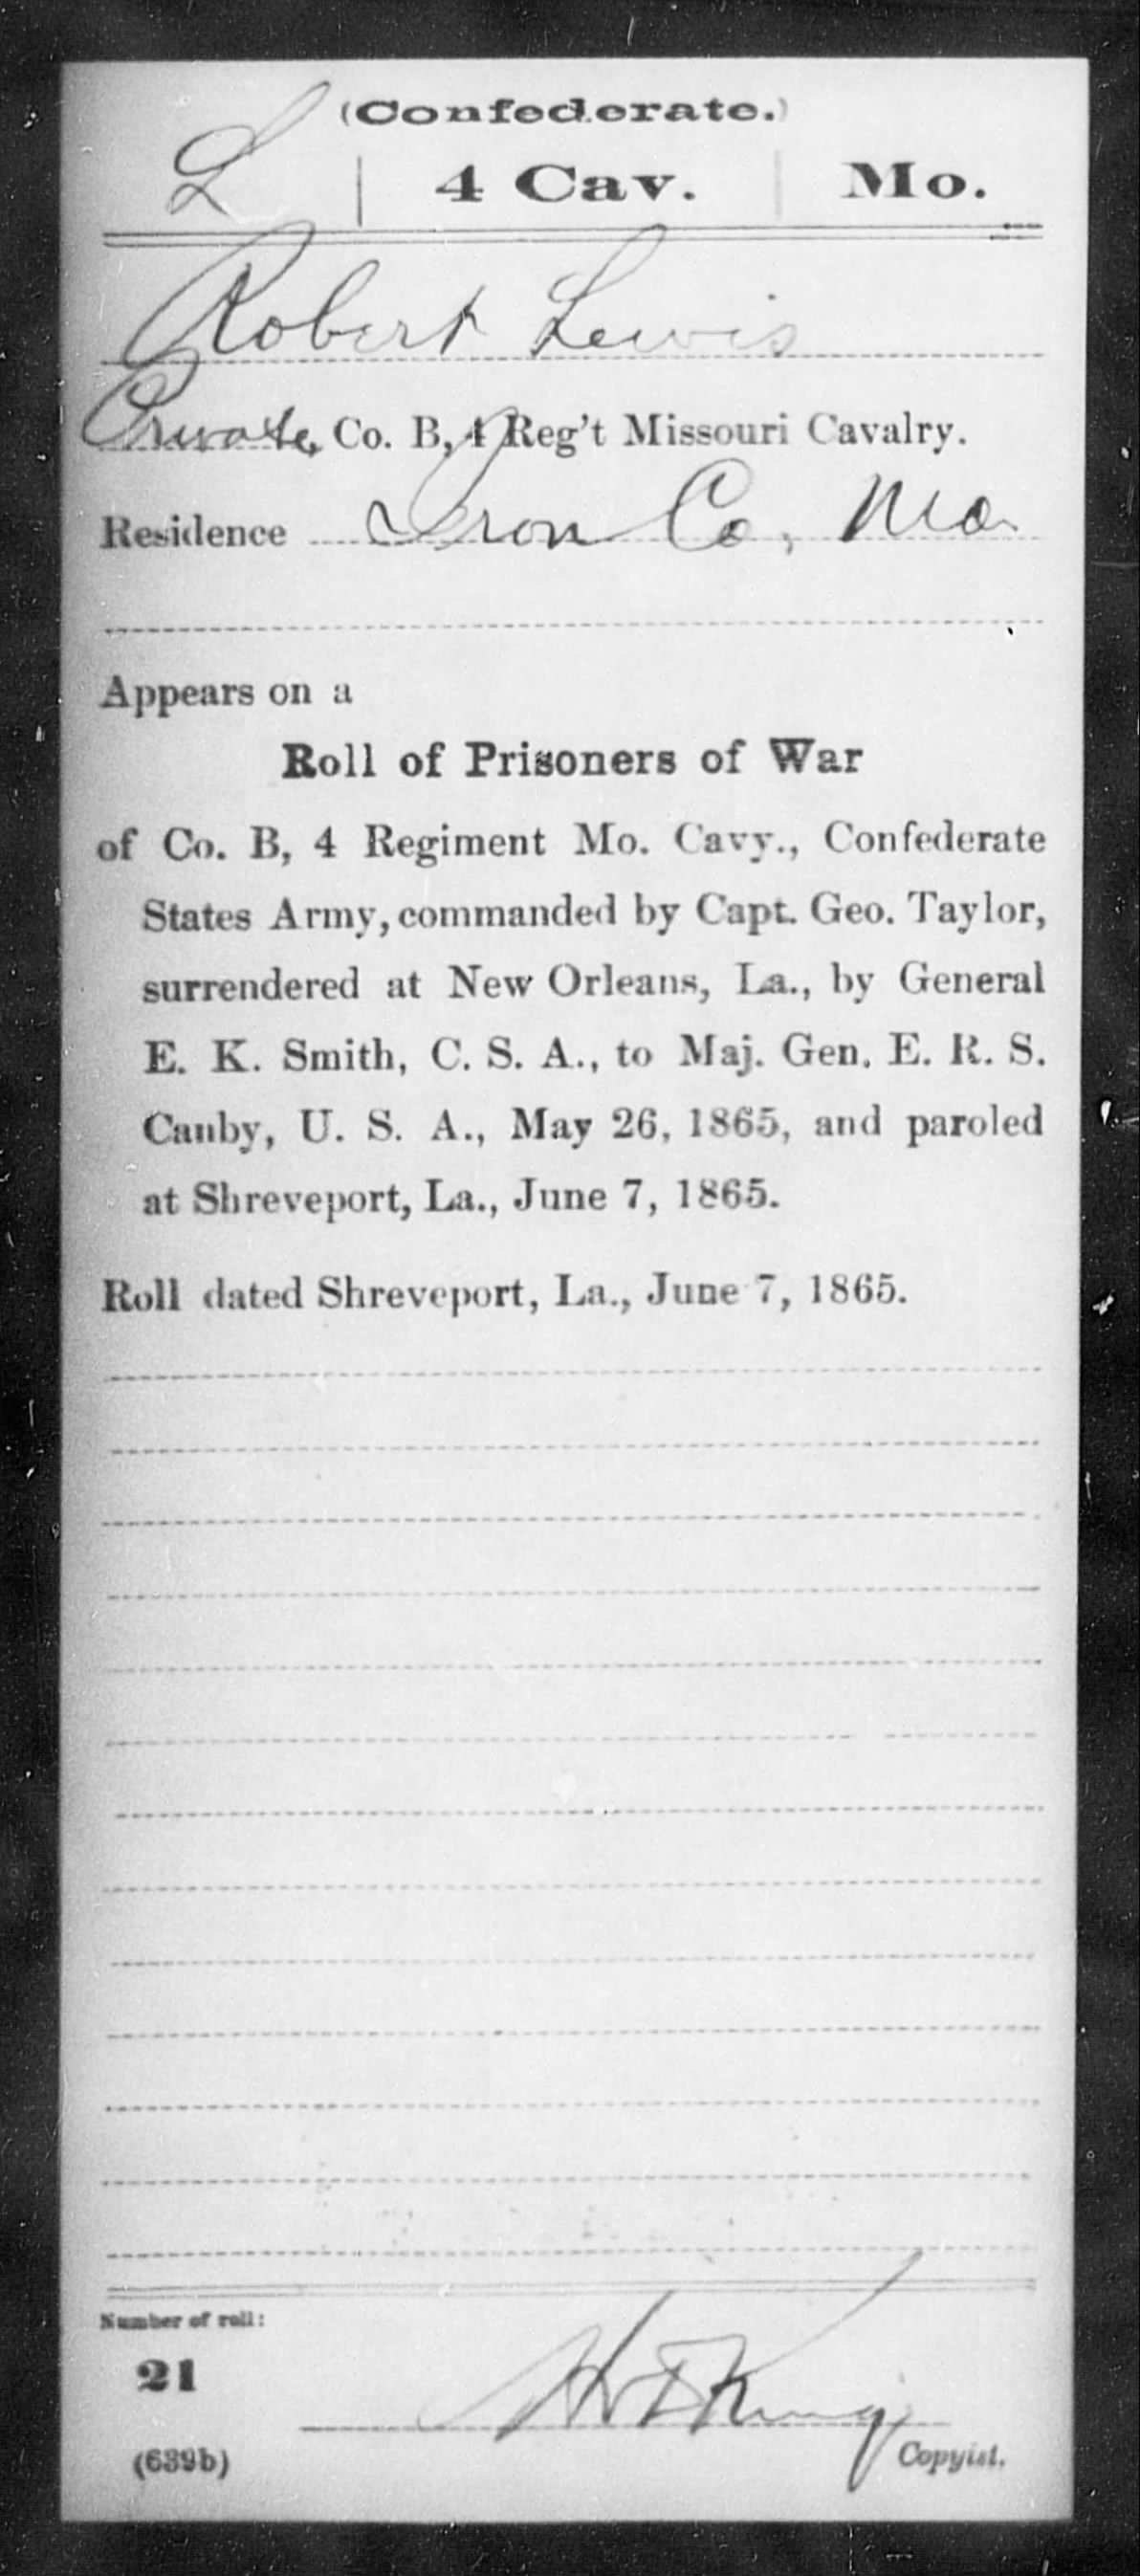 (Confederate.)
L | 4 Cav. | Mo.
Robert Lewis
Private, Co. B, 4 Reg't Missouri Cavalry.
Residence Iron Co, Mo.
Appears on a
Roll of Prisoners of War
of Co. B, 4 Regiment Mo. Cavy., Confederate
States Army, commanded by Capt. Geo. Taylor,
surrendered at New Orleans, La., by General
E. K. Smith, C. S. A., to Maj. Gen. E. R. S.
Canby, U. S. A., May 26, 1865, and paroled
at Shreveport, La., June 7, 1865.
Roll dated Shreveport, La., June 7, 1865.
Number of roll:
21
King
(639b)
Copyist.